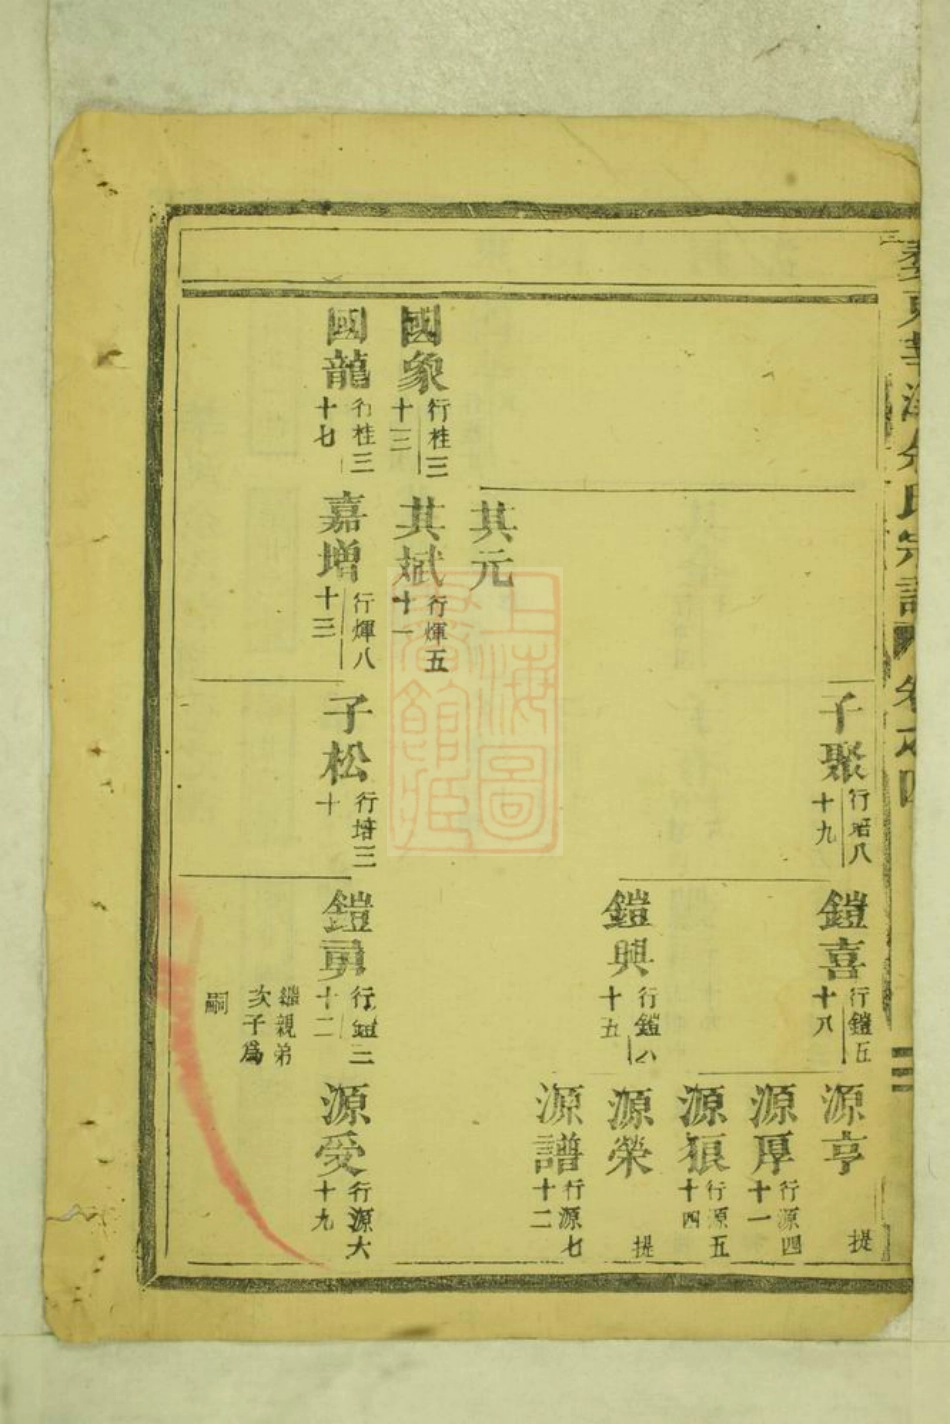 氏宗譜 卷之四
國象 行桂三十三
國龍 行桂三十七
其元
其斌 行煇五十一
嘉增 行煇八十三
子聚 行培八十九
子松 行培三十
鎧喜 行鎧五十八
鎧興 行鎧八十五
鎧勇 行鎧二十二
繼親弟次子爲嗣
源亨 提
源厚 行源四十一
源狠 行源五十四
源榮 提
源譜 行源七十二
源愛 行源六十九
上海圖書館藏